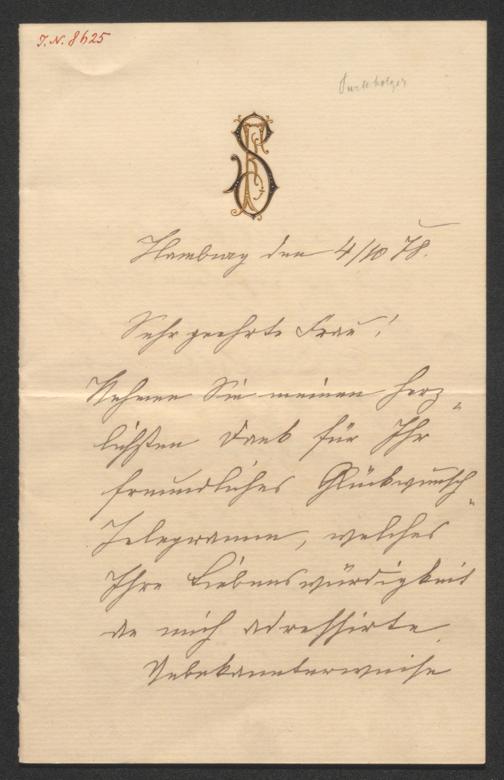 J.N. 8625
Hamburg den 4/10 78.
Sehr geehrte Frau!
Nehmen Sie meinen herz„
lichsten Dank für Ihr
freundliches Glückwunsch„
Telegramm, welches
Ihre Liebenswürdigkeit
an mich adressirte.
Unbekannterweise